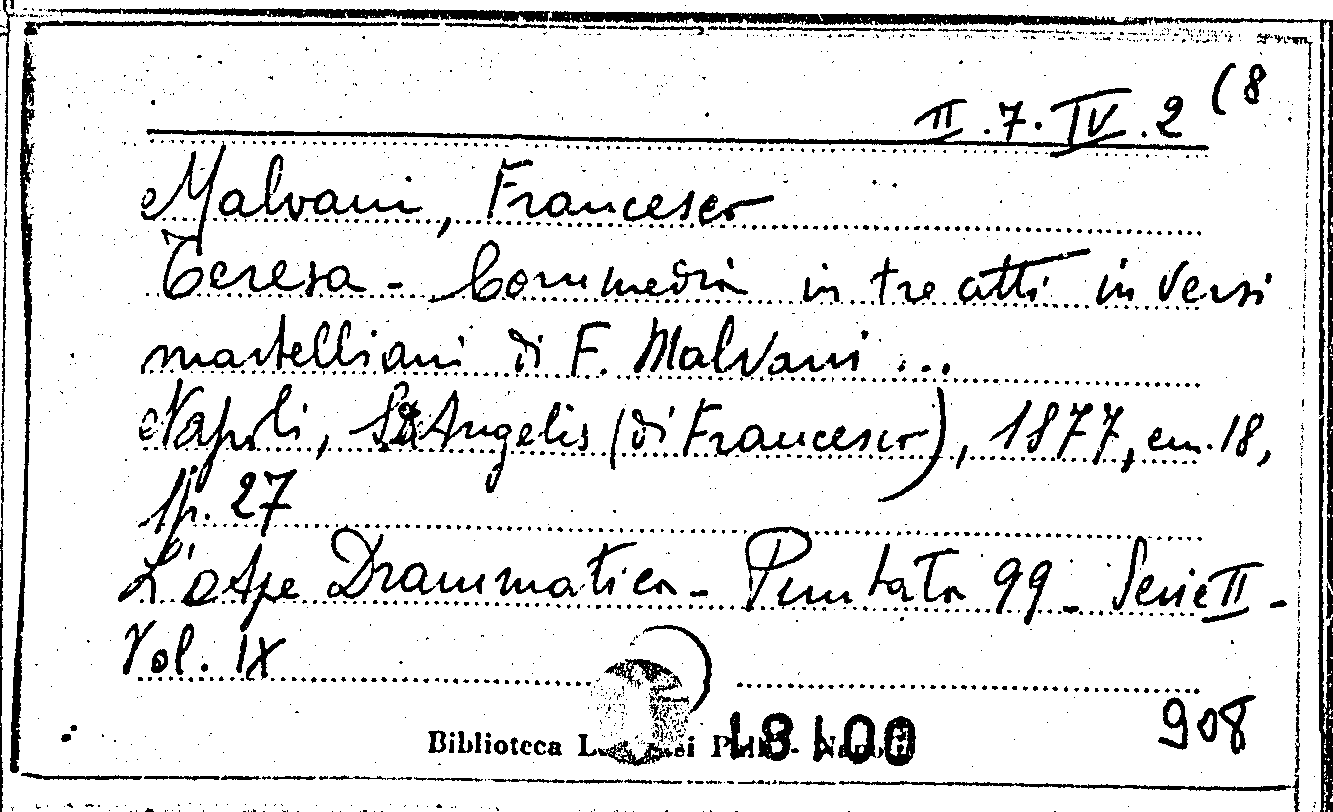 II.7.IV.2 (8
Malvani, Francesco
Teresa - Commedia in tre atti in versi
martelliani di F. Malvani ...
Napoli, De Angelis (di Francesco), 1877, cm. 18,
p. 27
L'Ape Drammatica - Puntata 99 - Serie II -
Vol. IX
908
Biblioteca 18100